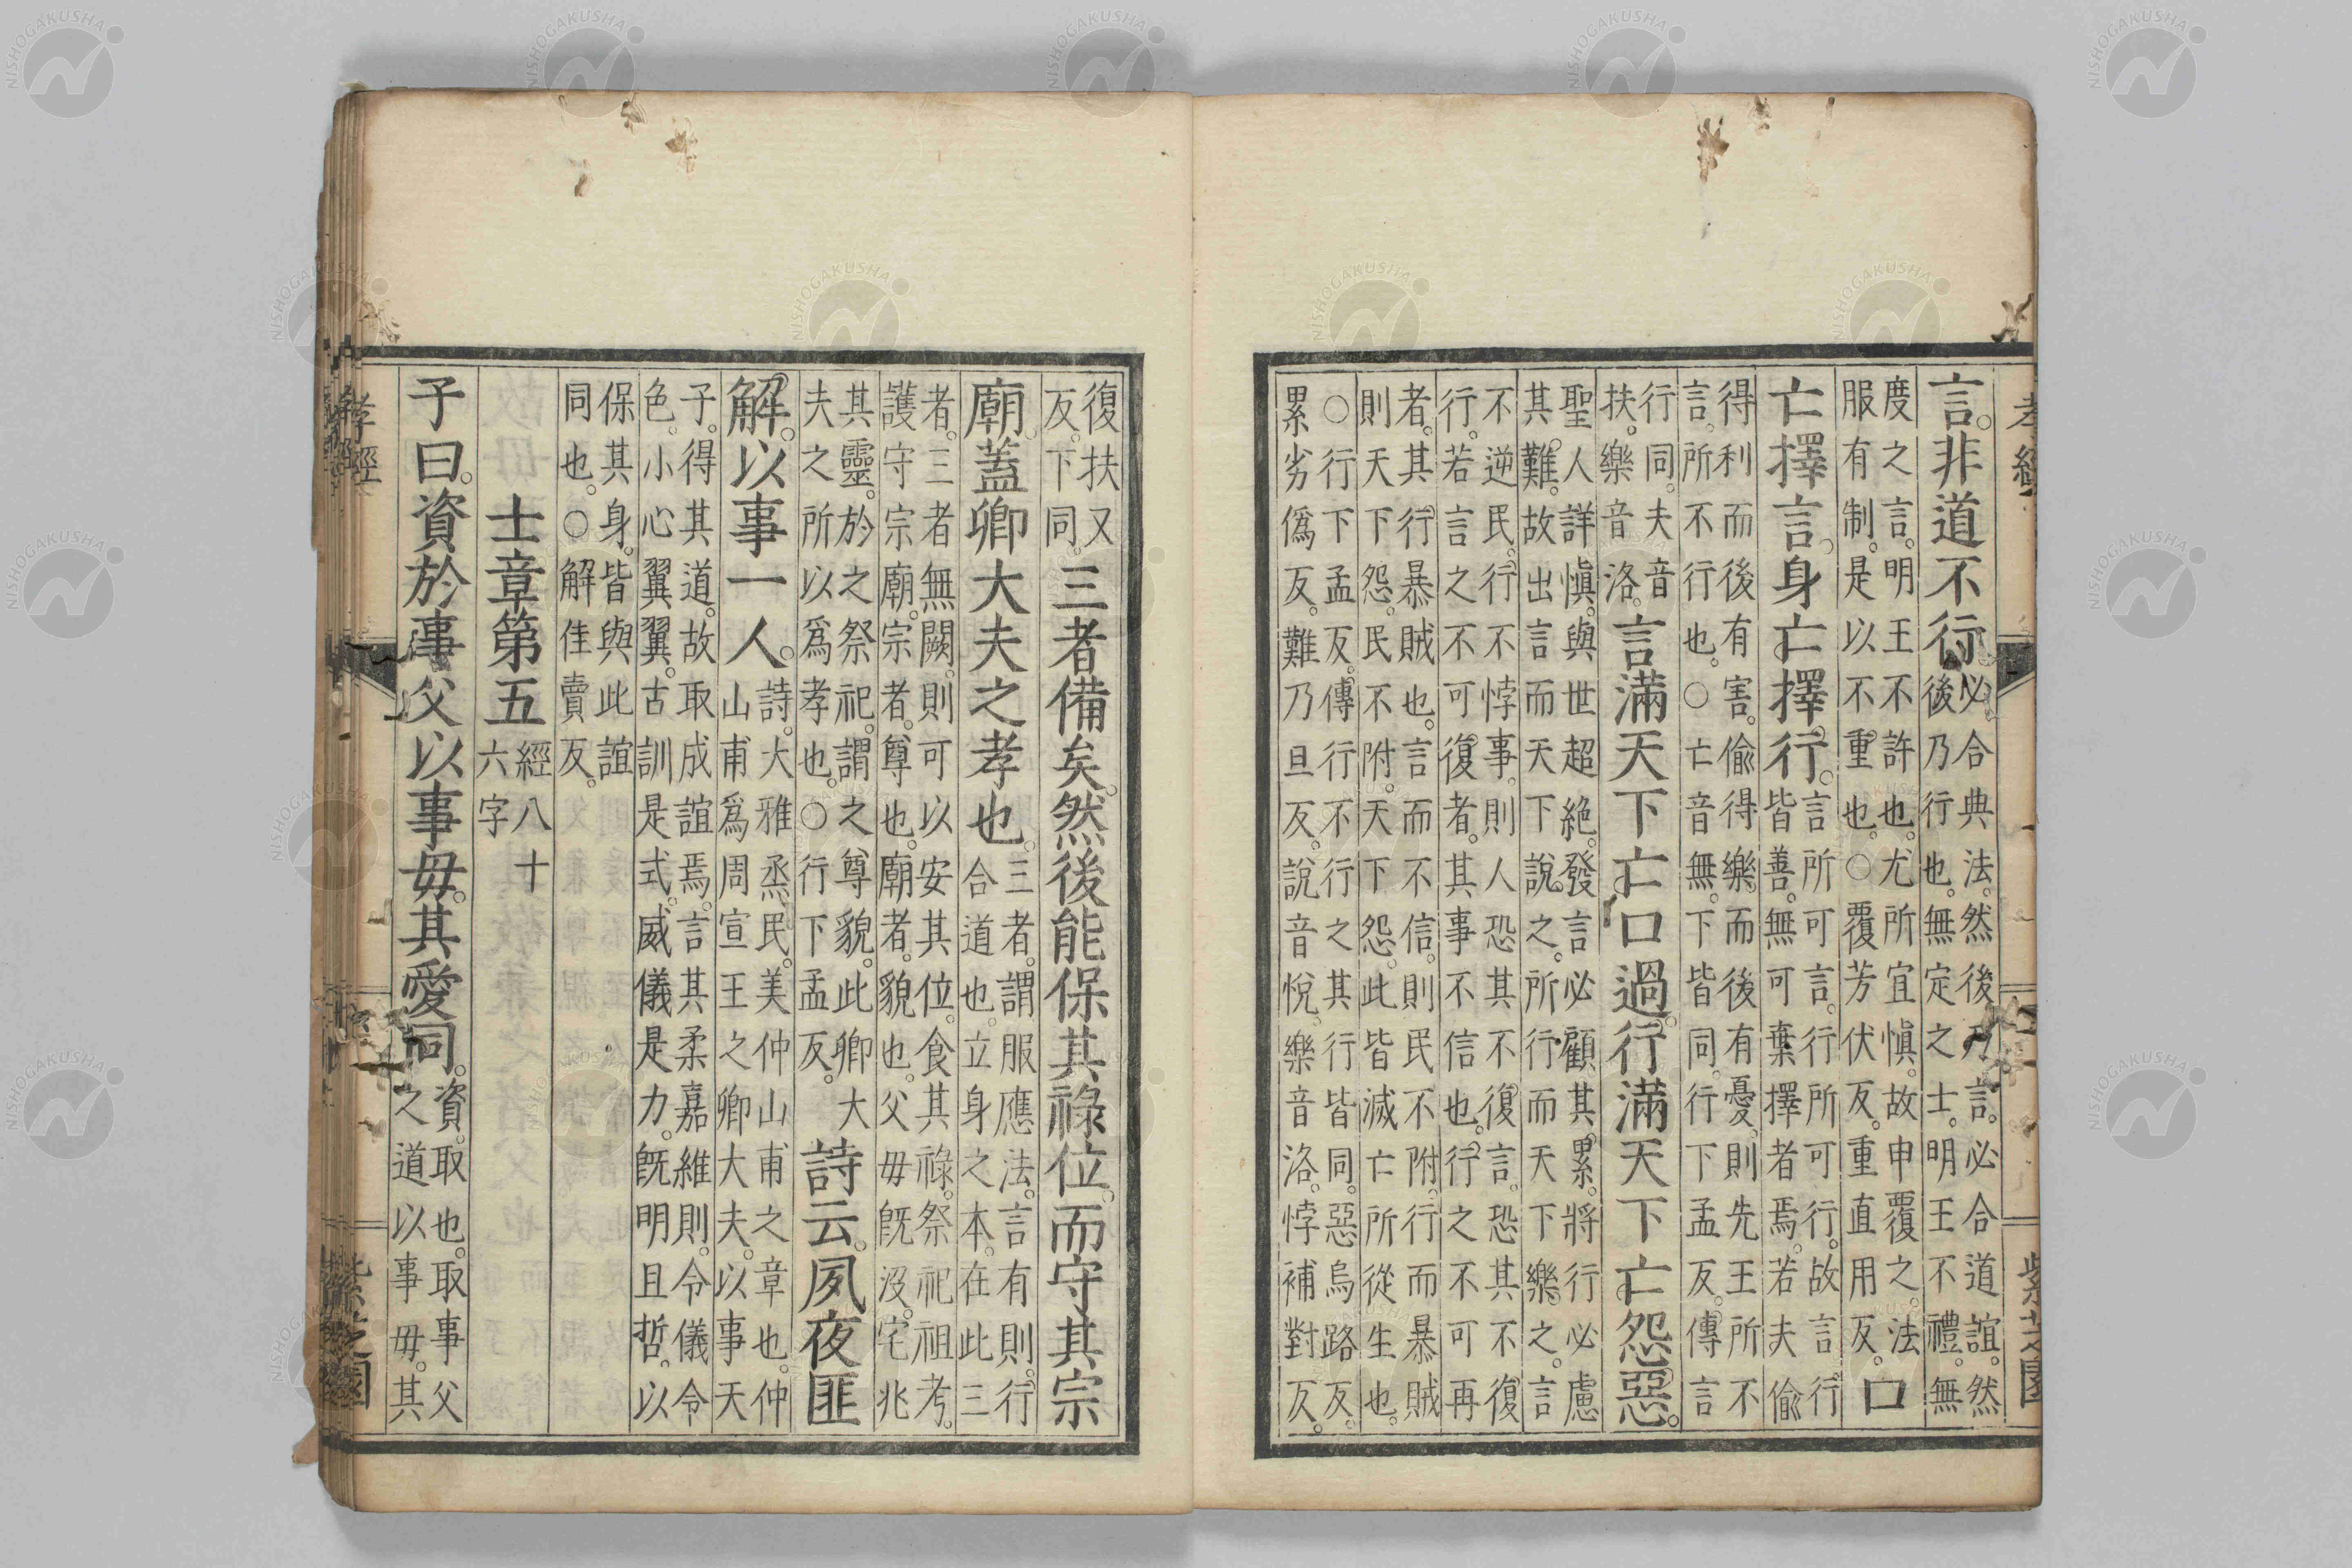 言。非道不行
必合典法。然後乃言。必合道誼。然
後乃行也。無定之士。明王不禮。無
度之言。明王不許也。尤所宜愼。故申覆之。法
服有制。是以不重也。○覆芳伏反。重直用反。
口
亡擇言。身亡擇行。
言所可言。行所可行。故言行
皆善。無可棄擇者焉。若夫偷
得利而後有害。偷得樂而後有憂。則先王所不
言。所不行也。○亡音無。下皆同。行下孟反。傳言
行同。夫音
扶。樂音洛。
言滿天下亡口過。行滿天下亡怨惡。
聖人詳愼。與世超絕。發言必顧其累。將行必慮
其難。故出言而天下說之。所行而天下樂之。言
不逆民。行不悖事。則人恐其不復言。恐其不復
行。若言之不可復者。其事不信也。行之不可再
者。其行暴賊也。言而不信。則民不附。行而暴賊
則天下怨。民不附。天下怨。此皆滅亡所從生也。
○行下孟反。傳行不行之其行行皆同。惡烏路反
累劣僞反。難乃旦反。說音悅。樂音洛。悖補對反。
復扶又
反。下同。
三者備矣。然後能保其祿位。而守其宗
廟。蓋卿大夫之孝也。
三者。謂服應法。言有則。行
合道也。立身之本。在此三
者。三者無闕。則可以安其位。食其祿。祭祀祖考。
護守宗廟。宗者。尊也。廟者。貌也。父毋旣沒。宅兆
其靈。於之祭祀。謂之尊貌。此卿大
夫之所以爲孝也。○行下孟反。
詩云。夙夜匪
解。以事一人。
詩。大雅烝民。美仲山甫之章也。仲
山甫爲周宣王之卿大夫。以事天
子。得其道。故取成誼焉。言其柔嘉維則。令儀令
色。小心翼翼。古訓是式。威儀是力。旣明且哲。以
保其身。皆與此誼
同也。○解佳賣反。
士章第五
經八十
六字
子曰。資於事父以事毋。其愛同。
資。取也。取事父
之道以事毋。其
孝經
紫芝園